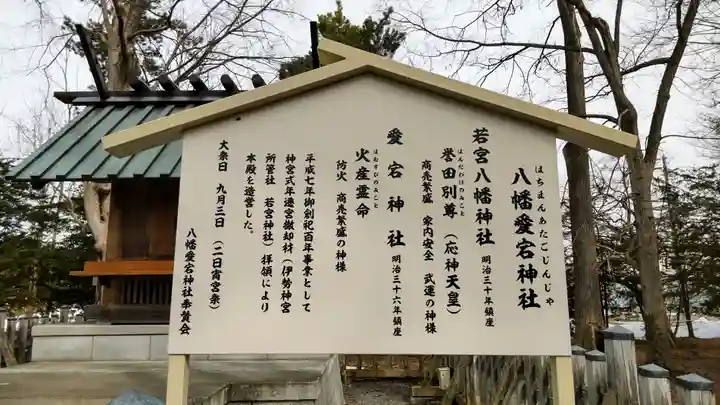 はちまんあたごじんじゃ
八幡愛宕神社
若宮八幡神社 明治三十年鎮座
ほんだわけのみこと
誉田別尊（応神天皇）
商売繁盛 家内安全 武運の神様
愛宕神社 明治三十六年鎮座
ほむすびのみこと
火産霊命
防火 商売繁盛の神様
平成七年御創祀百年事業として
神宮式年遷宮撤却材（伊勢神宮
所管社 若宮神社）拝領により
本殿を造営した。
大祭日 九月三日（二日宵宮祭）
八幡愛宕神社奉賛会